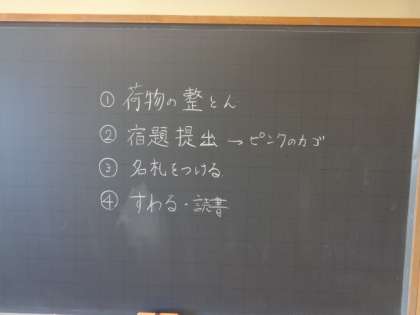 ① 荷物の整とん
② 宿題提出 → ピンクのカゴ
③ 名札をつける
④ すわる・読書